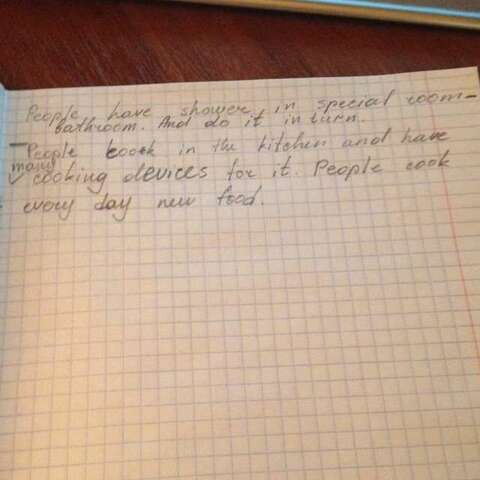 People have shower in special room-
bathroom. And do it in turn.
People coock in the kitchen and have
many
cooking devices for it. People cook
every day new food.